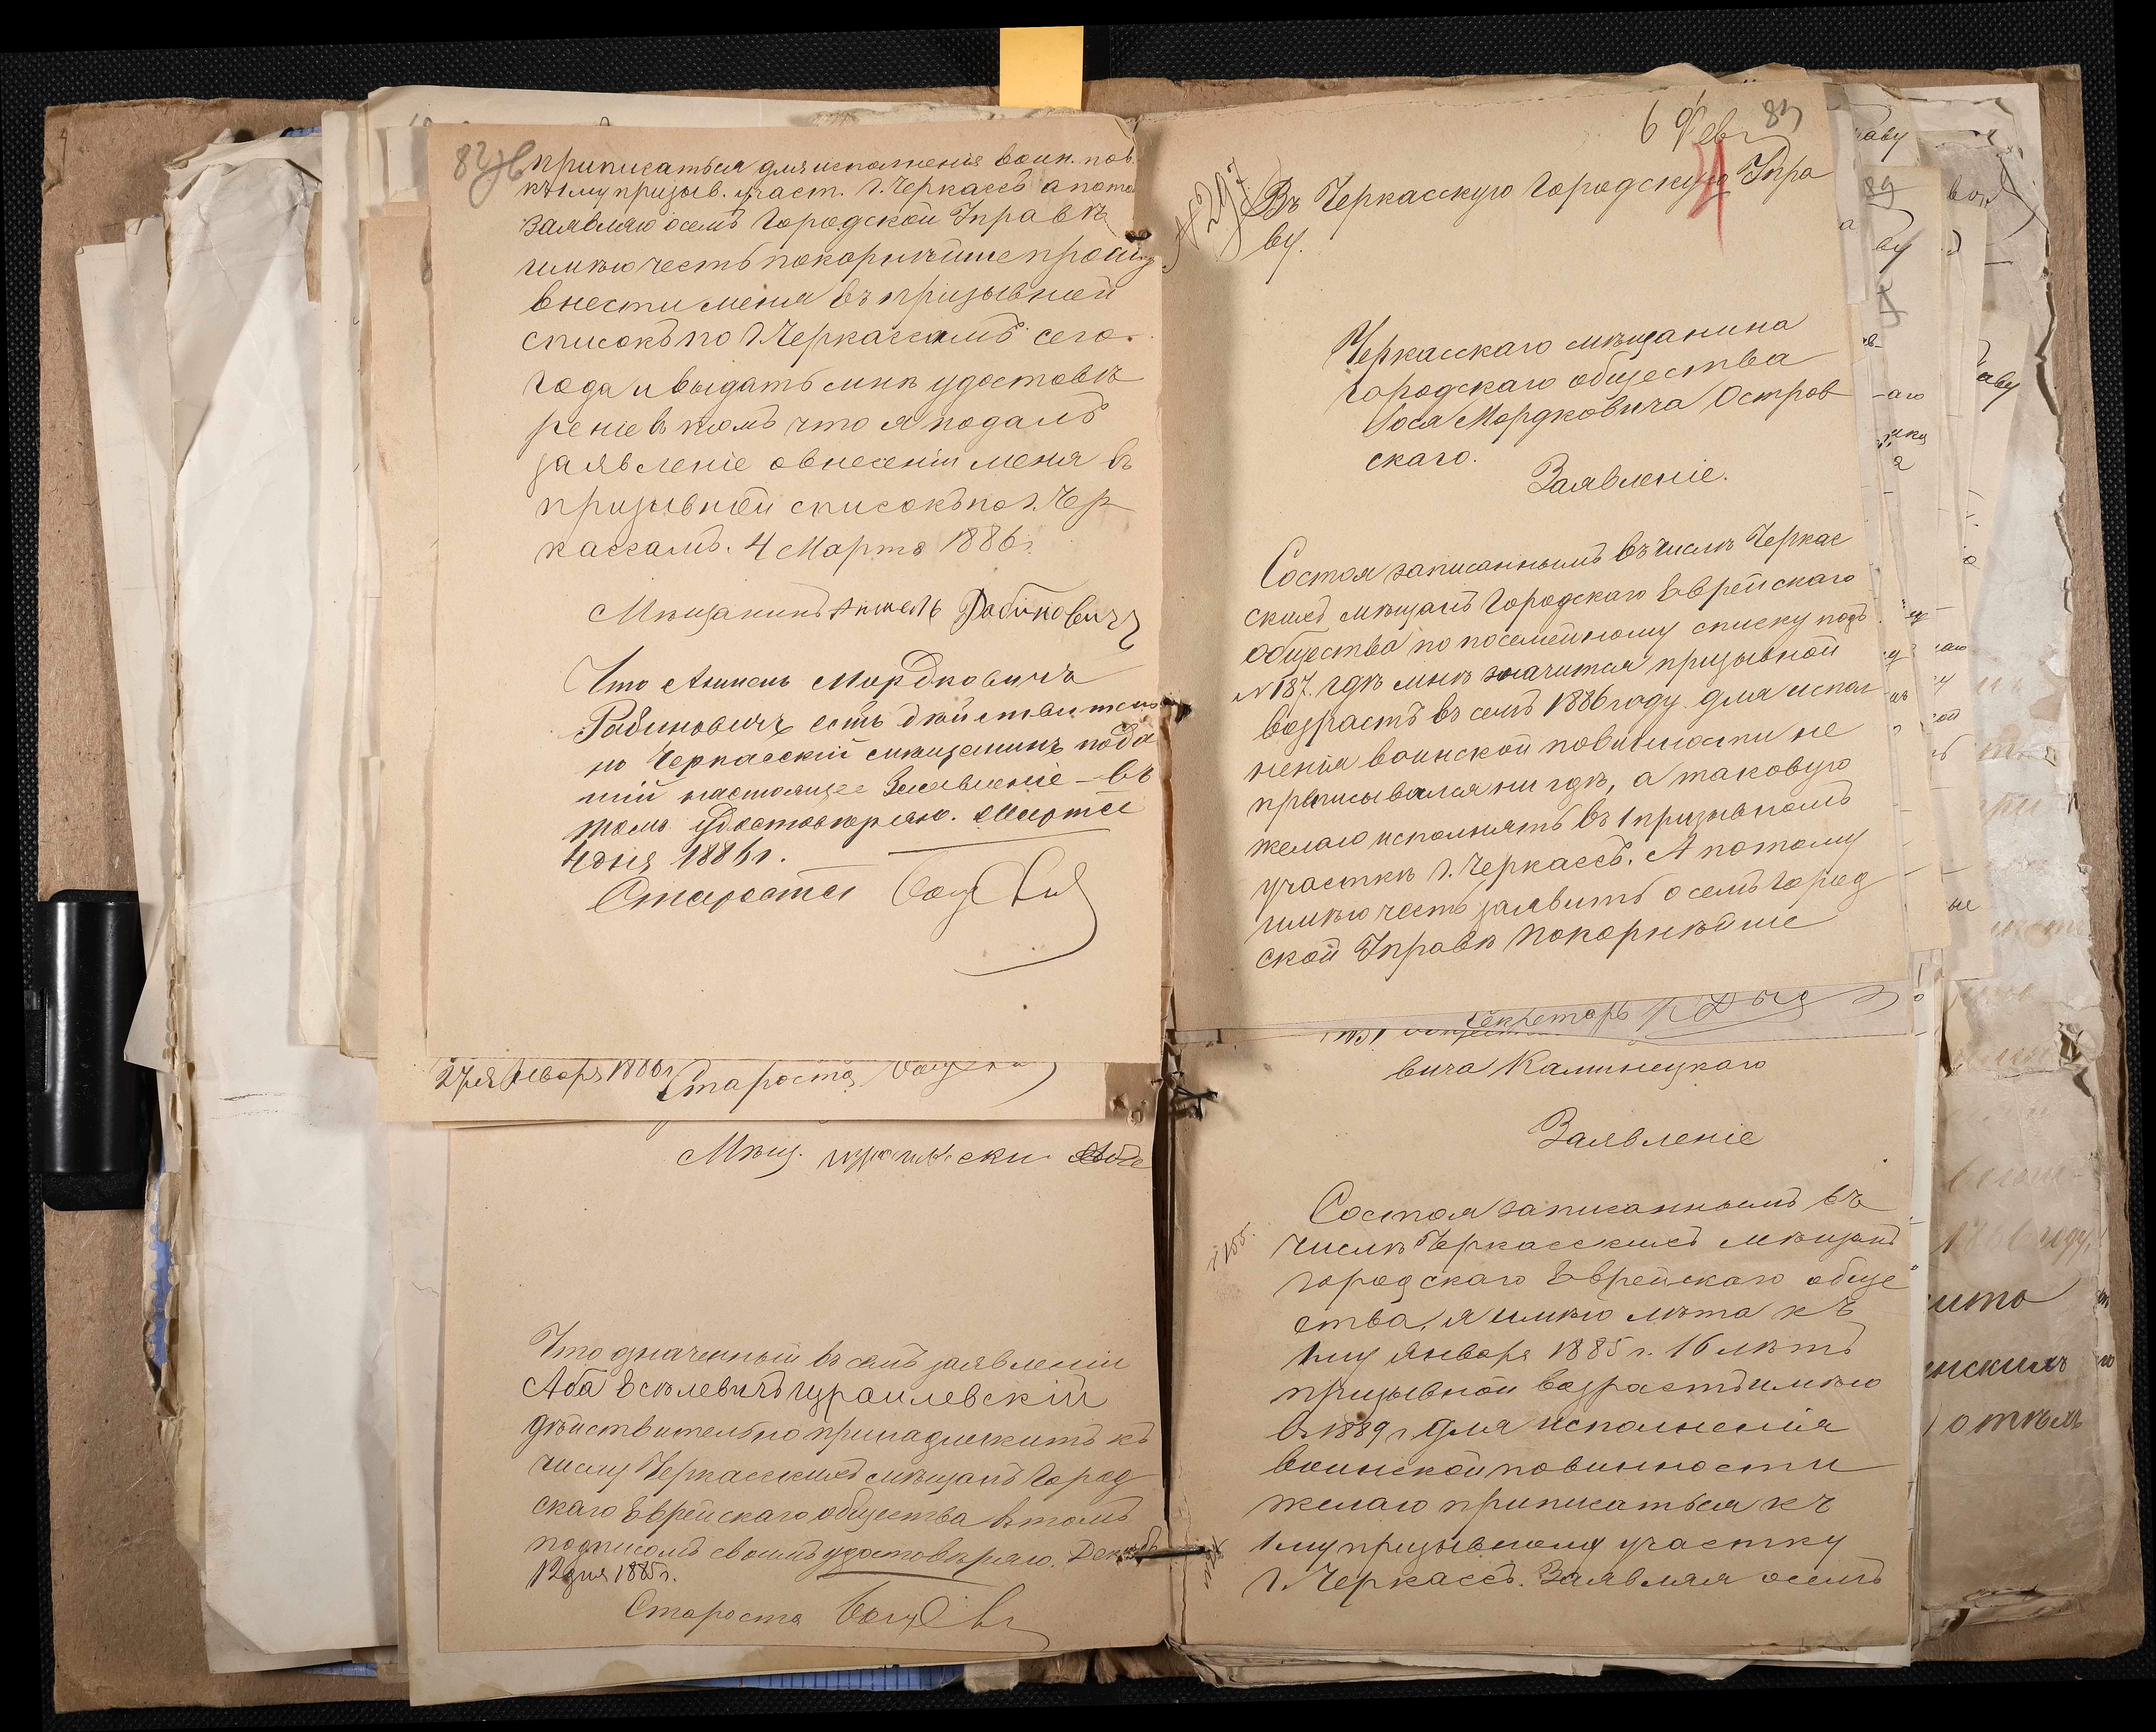 приписаться для исполненія воин. пов.
къ 1му призыв. участ. г. Черкассъ а пото
заявляю о семъ Городской Управѣ
имѣю честь покорнѣйше прошу
внести меня въ призывной
списокъ по г. Черкассамъ сего
года и выдать мнѣ удостовѣ
реніе въ томъ что я подалъ
заявленіе о внесеніи меня въ
призывной списокъ по г. Чер
кассамъ. 4 Марта 1886 г.
Мѣщанинъ Аншель Рабиновичъ
Что Аншель Мордковичъ
Рабиновичъ есть дѣйствитель
но Черкасскій мѣщанинъ пода
ній настоящее Заявленіе – въ
томъ Удостовѣряю. Марта
4 дня 1886 г.
Староста
27 дня Января 1886 г. Староста
Мѣщ.
Что значенный въ семъ заявленіи
Аба Есѣлевичъ Израилевскій
дѣйствительно принадлежитъ къ
числу Черкасскихъ мѣщанъ Город
скаго Еврейскаго общества въ томъ
подписомъ своимъ удостовѣряю. Декабр
12 дня 1885 г.
Староста
6 Фев 89
№ 297
Въ Черкасскую Городскую Упра
ву.
Черкасскаго мѣщанина
городскаго общества
Іося Мордковича Остров
скаго.
Заявленіе.
Состоя записаннымъ въ числѣ Черкас
скихъ мѣщанъ Городскаго Еврейскаго
общества по посемейному списку подъ
№ 187. гдѣ мнѣ значится призывной
возрастъ въ семъ 1886 году для испол
ненія воинской повинности не
приписывался ни гдѣ, а таковую
желаю исполнять въ 1 призывномъ
участкѣ г. Черкассъ. А потому
имѣю честь заявить о семъ Город
ской Управѣ покорнѣйше
Секретарь
вича Калинецкаго
Заявленіе
Состоя записаннымъ въ
числѣ Черкасскихъ мѣщанъ
городскаго Еврейскаго обще
ства, я имѣю лѣта къ
1му Января 1885 г. 16 лѣтъ
призывной возрастъ имѣю
въ 1889 г. для исполненія
воинской повинности
желаю приписаться къ
1му призывному участку
г. Черкассъ. Заявляя о семъ